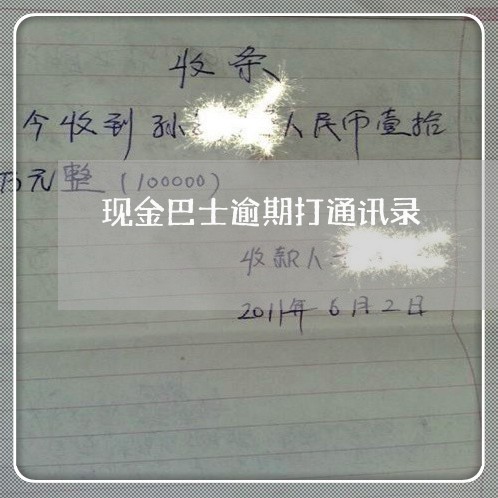 收条
今收到孙 人民币壹拾
万元整（100000）
现金巴士逾期打通讯录
收款人
2011年6月2日